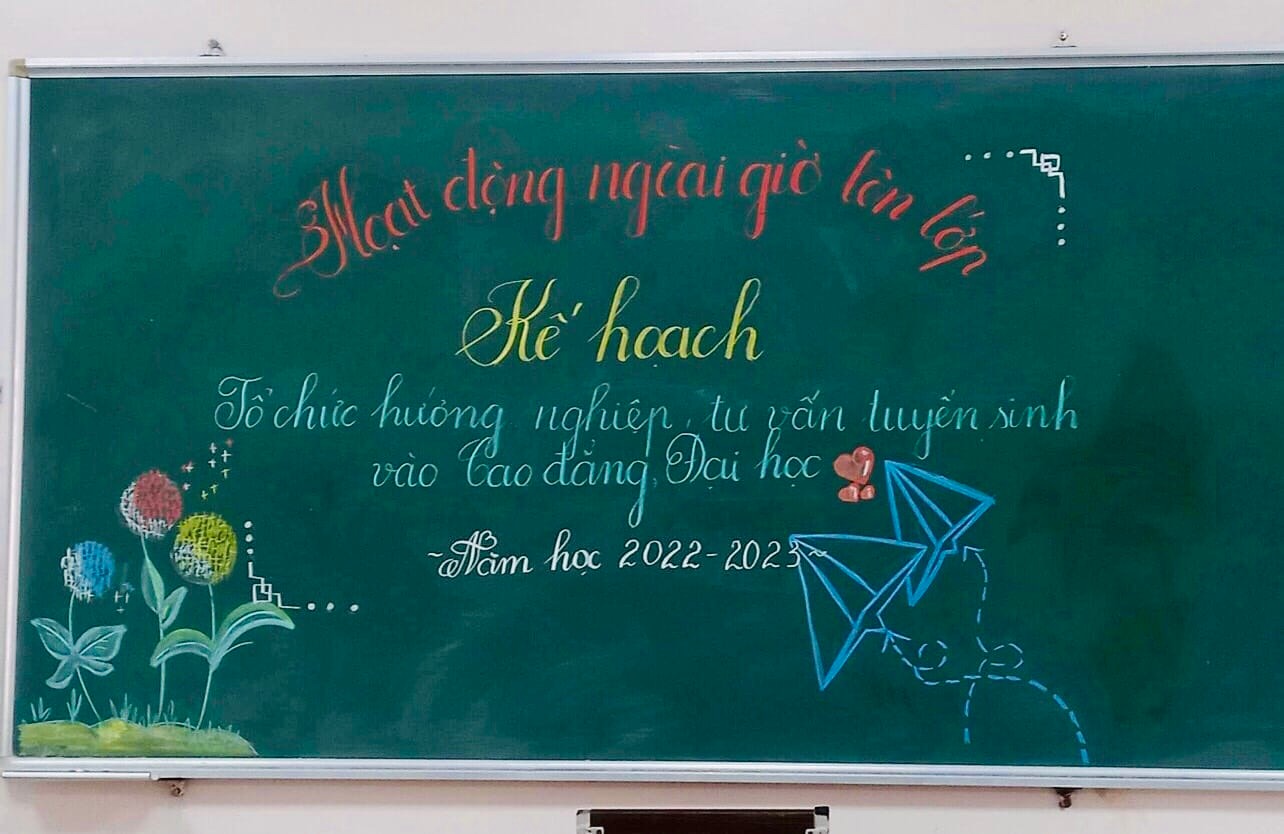 Hoạt động ngoài giờ lên lớp
Kế hoạch
Tổ chức hướng nghiệp, tư vấn tuyển sinh
vào Cao đẳng, Đại học
~Năm học 2022-2023~